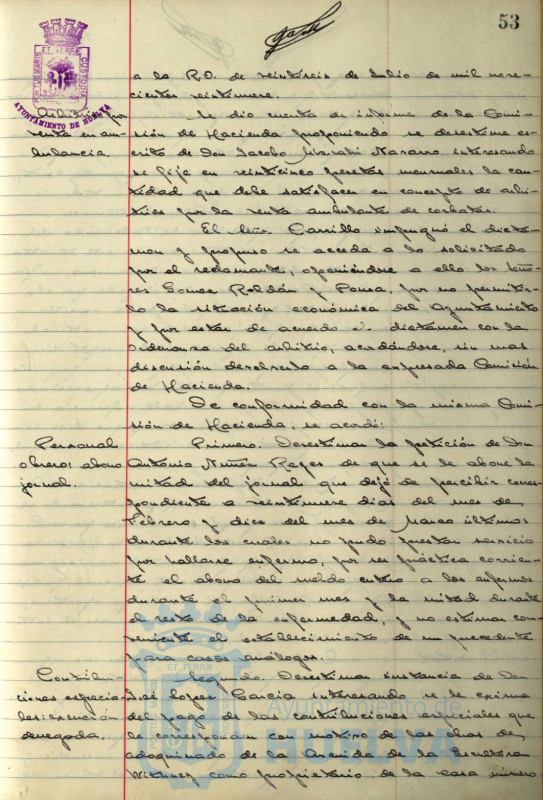 53
AYUNTAMIENTO DE HUELVA
a la R.O. de veintiseis de Julio de mil nove-
cientos veintinueve.
Arbitrios por
venta en am-
bulancia.
Se dio cuenta de informe de la Comi-
sión de Hacienda proponiendo se desestime es-
crito de Don Jacobo Mizrahi Navarro interesando
se fije en veinticinco pesetas mensuales la can-
tidad que debe satisfacer en concepto de arbi-
trios por la venta ambulante de corbatas.
El Señor Carrillo impugnó el dicta-
men y propuso se acceda a lo solicitado
por el reclamante, oponiéndose a ello los Seño-
res Gomez Roldán y Ponsa, por no permitir-
lo la situación económica del Ayuntamiento
y por estar de acuerdo el dictamen con la
Ordenanza del arbitrio, acordándose, sin mas
discusión devolverlo a la expresada Comisión
de Hacienda.
De conformidad con la misma Comi-
sión de Hacienda, se acordó:
Personal
obrero: abono
jornal.
Primero. Desestimar la petición de Don
Antonio Núñez Reyes de que se le abone la
mitad del jornal que dejó de percibir corres-
pondiente a veintinueve dias del mes de
Febrero y diez del mes de Marzo últimos
durante los cuales no pudo prestar servicio
por hallarse enfermo, por ser práctica corrien-
te el abono del sueldo entero a los enfermos
durante el primer mes y la mitad durante
el resto de la enfermedad, y no estimar con-
veniente el establecimiento de un precedente
para casos análogos.
Contribu-
ciones especia-
les: exención
denegada.
Segundo. Desestimar instancia de Don
José Lopez Garcia interesando se le exima
del pago de las contribuciones especiales que
le corresponden con motivo de las obras de
adoquinado de la Avenida de la Escultora
Withney como propietario de la casa número
Ayuntamiento de
HUELVA